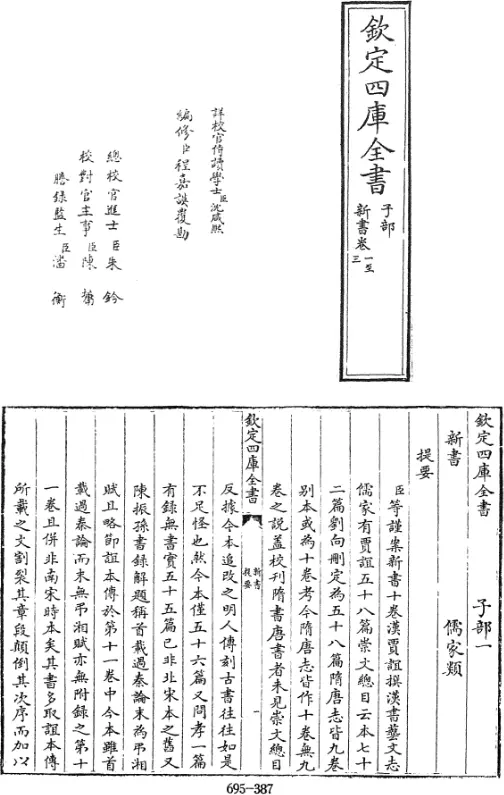 欽定四庫全書
子部
新書卷一至三
詳校官侍讀學士臣沈咸熙
編修臣程嘉謨覆勘
總校官進士臣朱鈐
校對官主事臣陳
謄錄監生臣潘衡
欽定四庫全書 子部一
新書 儒家類
提要
臣等謹案新書十卷漢賈誼撰漢書藝文志
儒家有賈誼五十八篇崇文總目云本七十
二篇劉向刪定為五十八篇隋唐志皆九卷
别本或為十卷考今隋唐志皆作十卷無九
卷之說盖校刊隋書唐書者未見崇文總目
欽定四庫全書 新書提要 一
反據今本追改之明人傳刻古書往往如是
不足怪也然今本僅五十六篇又問孝一篇
有録無書實五十五篇已非北宋本之舊又
陳振孫書録解題稱首載過秦論末為弔湘
賦且略節誼本傳於第十一卷中今本雖首
載過秦論而末無弔湘賦亦無附録之第十
一卷且併非南宋時本矣其書多取誼本傳
所載之文割裂其章段顛倒其次序而加以
695-387